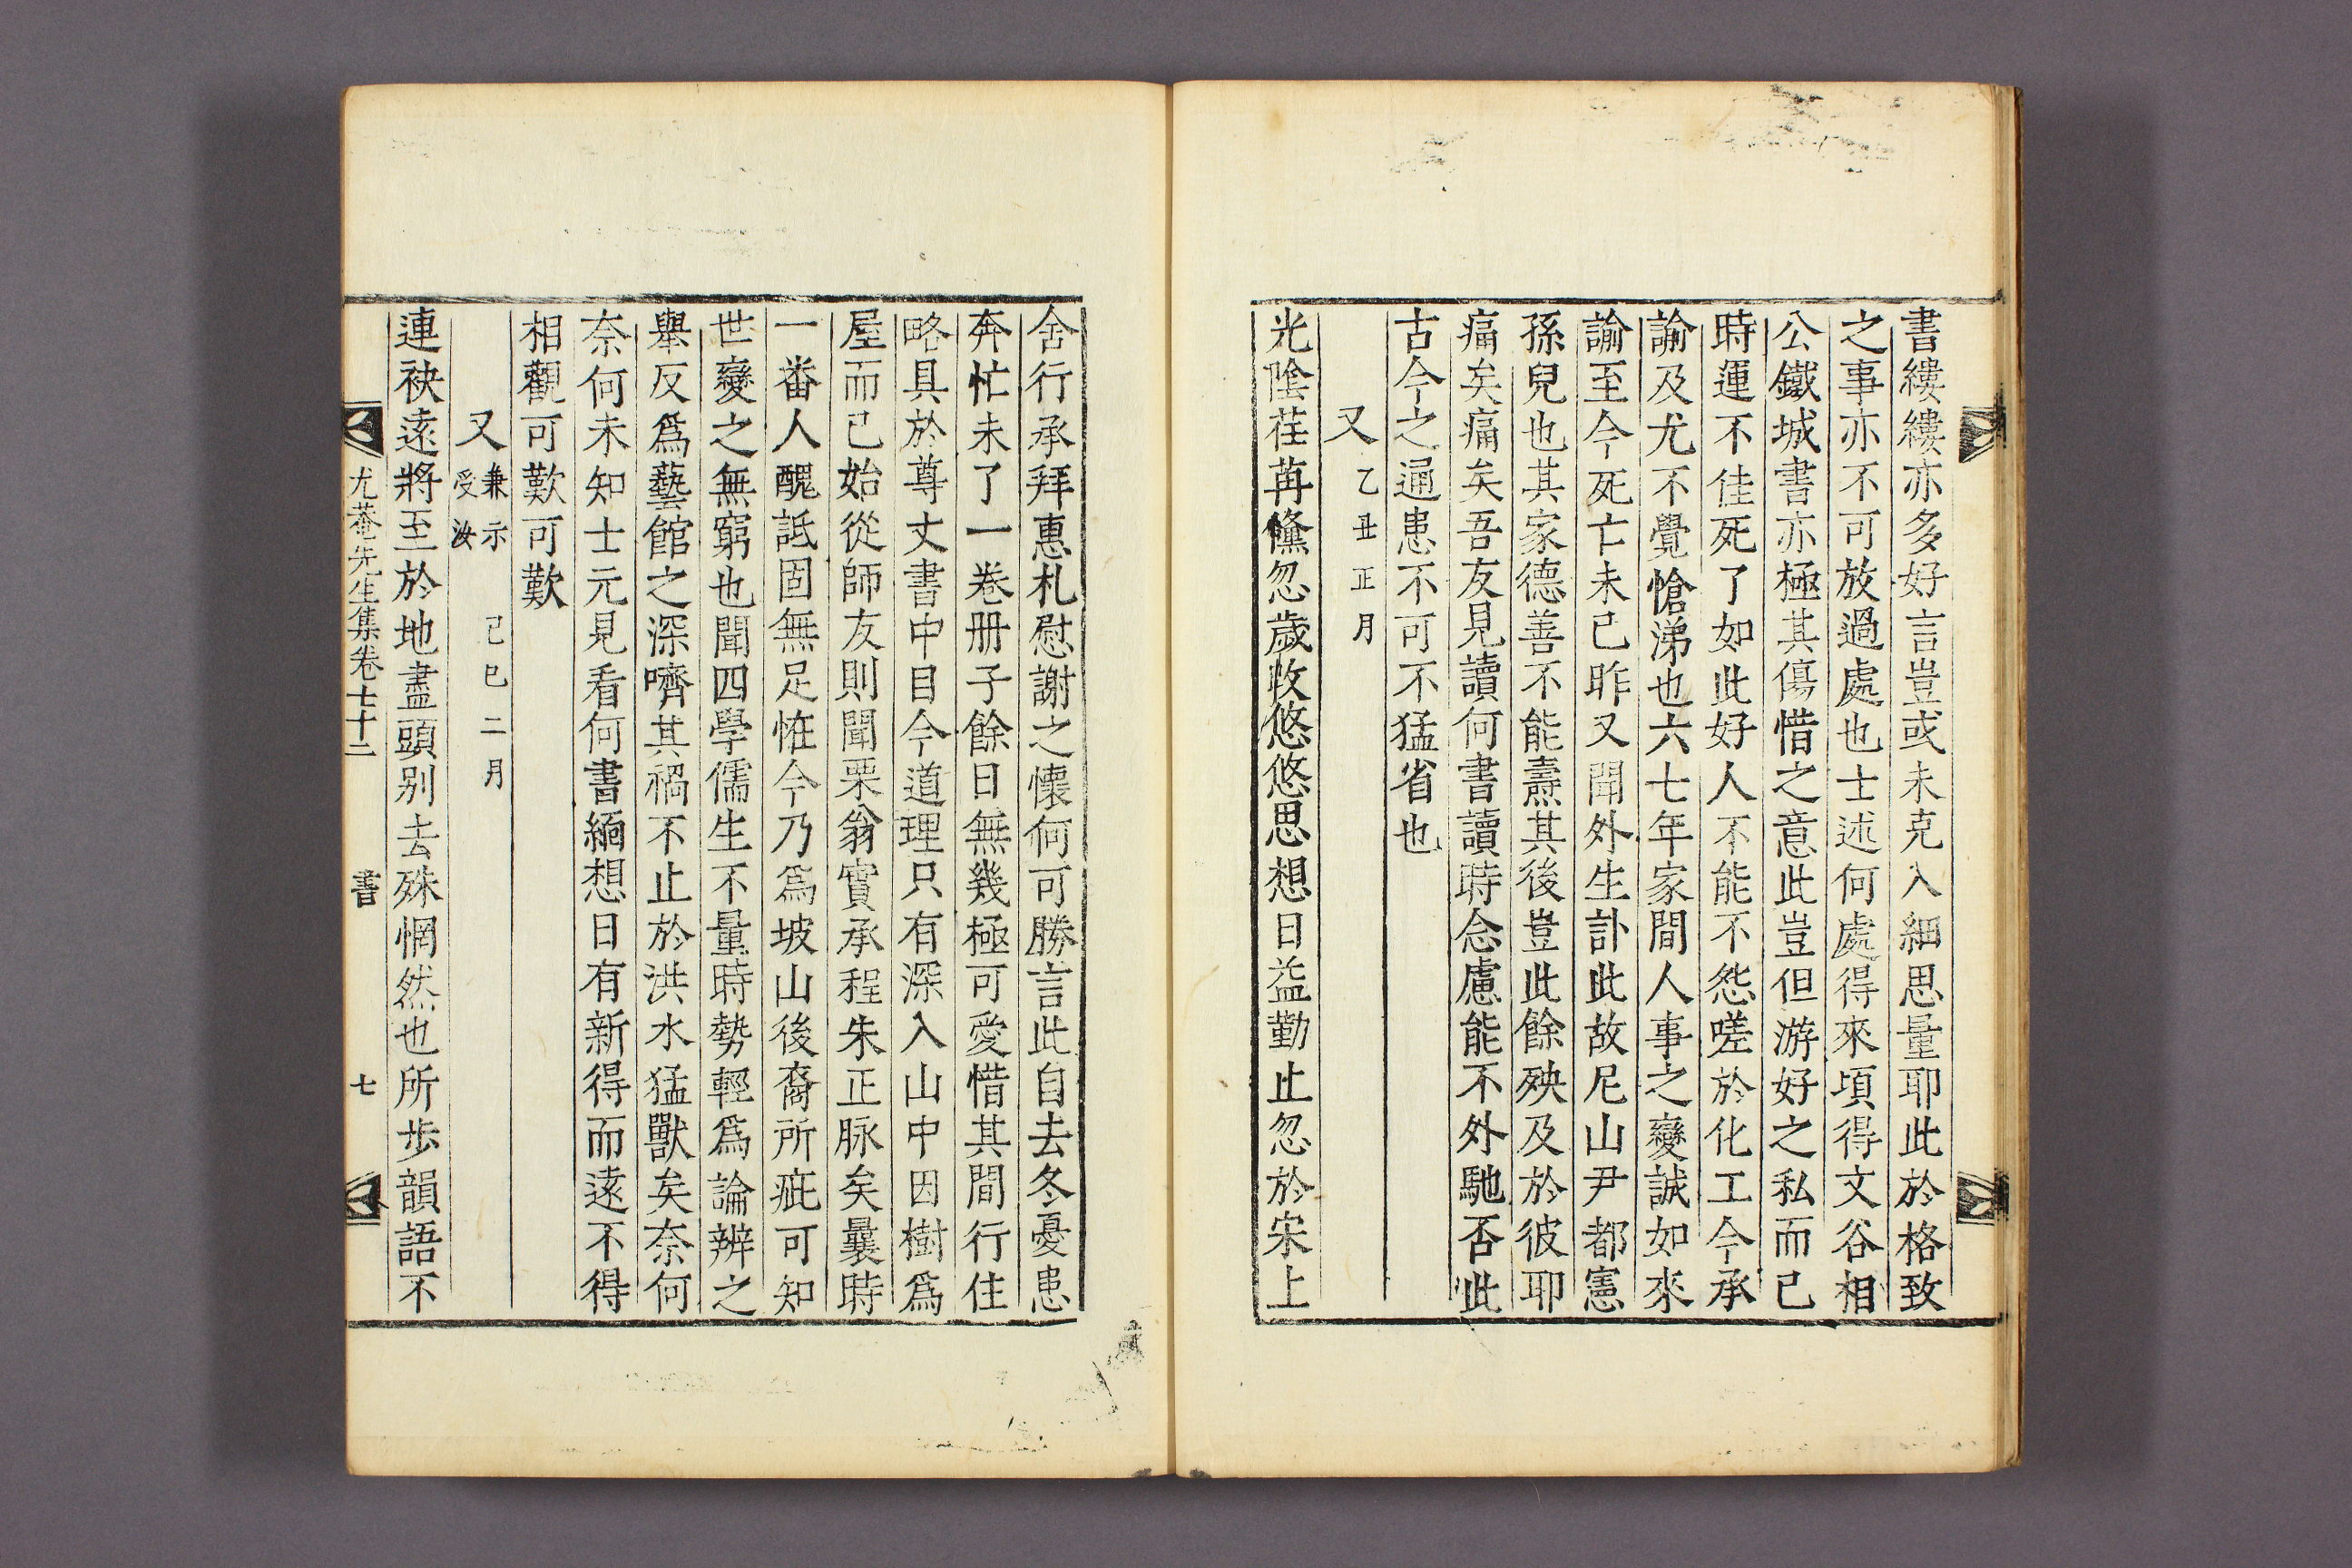 書縷縷亦多好言豈或未克入細思量耶此於格致
之事亦不可放過處也士述何處得來頃得文谷相
公鐵城書亦極其傷惜之意此豈但游好之私而已
時運不佳死了如此好人不能不怨嗟於化工今承
諭及尤不覺愴涕也六七年家間人事之變誠如來
諭至今死亡未已昨又聞外生訃此故尼山尹都憲
孫兒也其家德善不能壽其後豈此餘殃及於彼耶
痛矣痛矣吾友見讀何書讀時念慮能不外馳否此
古今之通患不可不猛省也
又 乙丑正月
光陰荏苒儵忽歲收悠悠思想日益勤止忽於宋上
舍行承拜惠札慰謝之懷何可勝言此自去冬憂患
奔忙未了一卷册子餘日無幾極可愛惜其間行住
略具於尊丈書中目今道理只有深入山中因樹爲
屋而已始從師友則聞栗翁實承程朱正脉矣曩時
一番人醜詆固無足恠今乃爲坡山後裔所疵可知
世變之無窮也聞四學儒生不量時勢輕爲論辨之
舉反爲藝館之深嚌其禍不止於洪水猛獸矣奈何
奈何未知士元見看何書緬想日有新得而遠不得
相觀可歎可歎
又 兼示受汝 己巳二月
連袂遠將至於地盡頭别去殊惘然也所步韻語不
尤菴先生集卷七十二 書 七